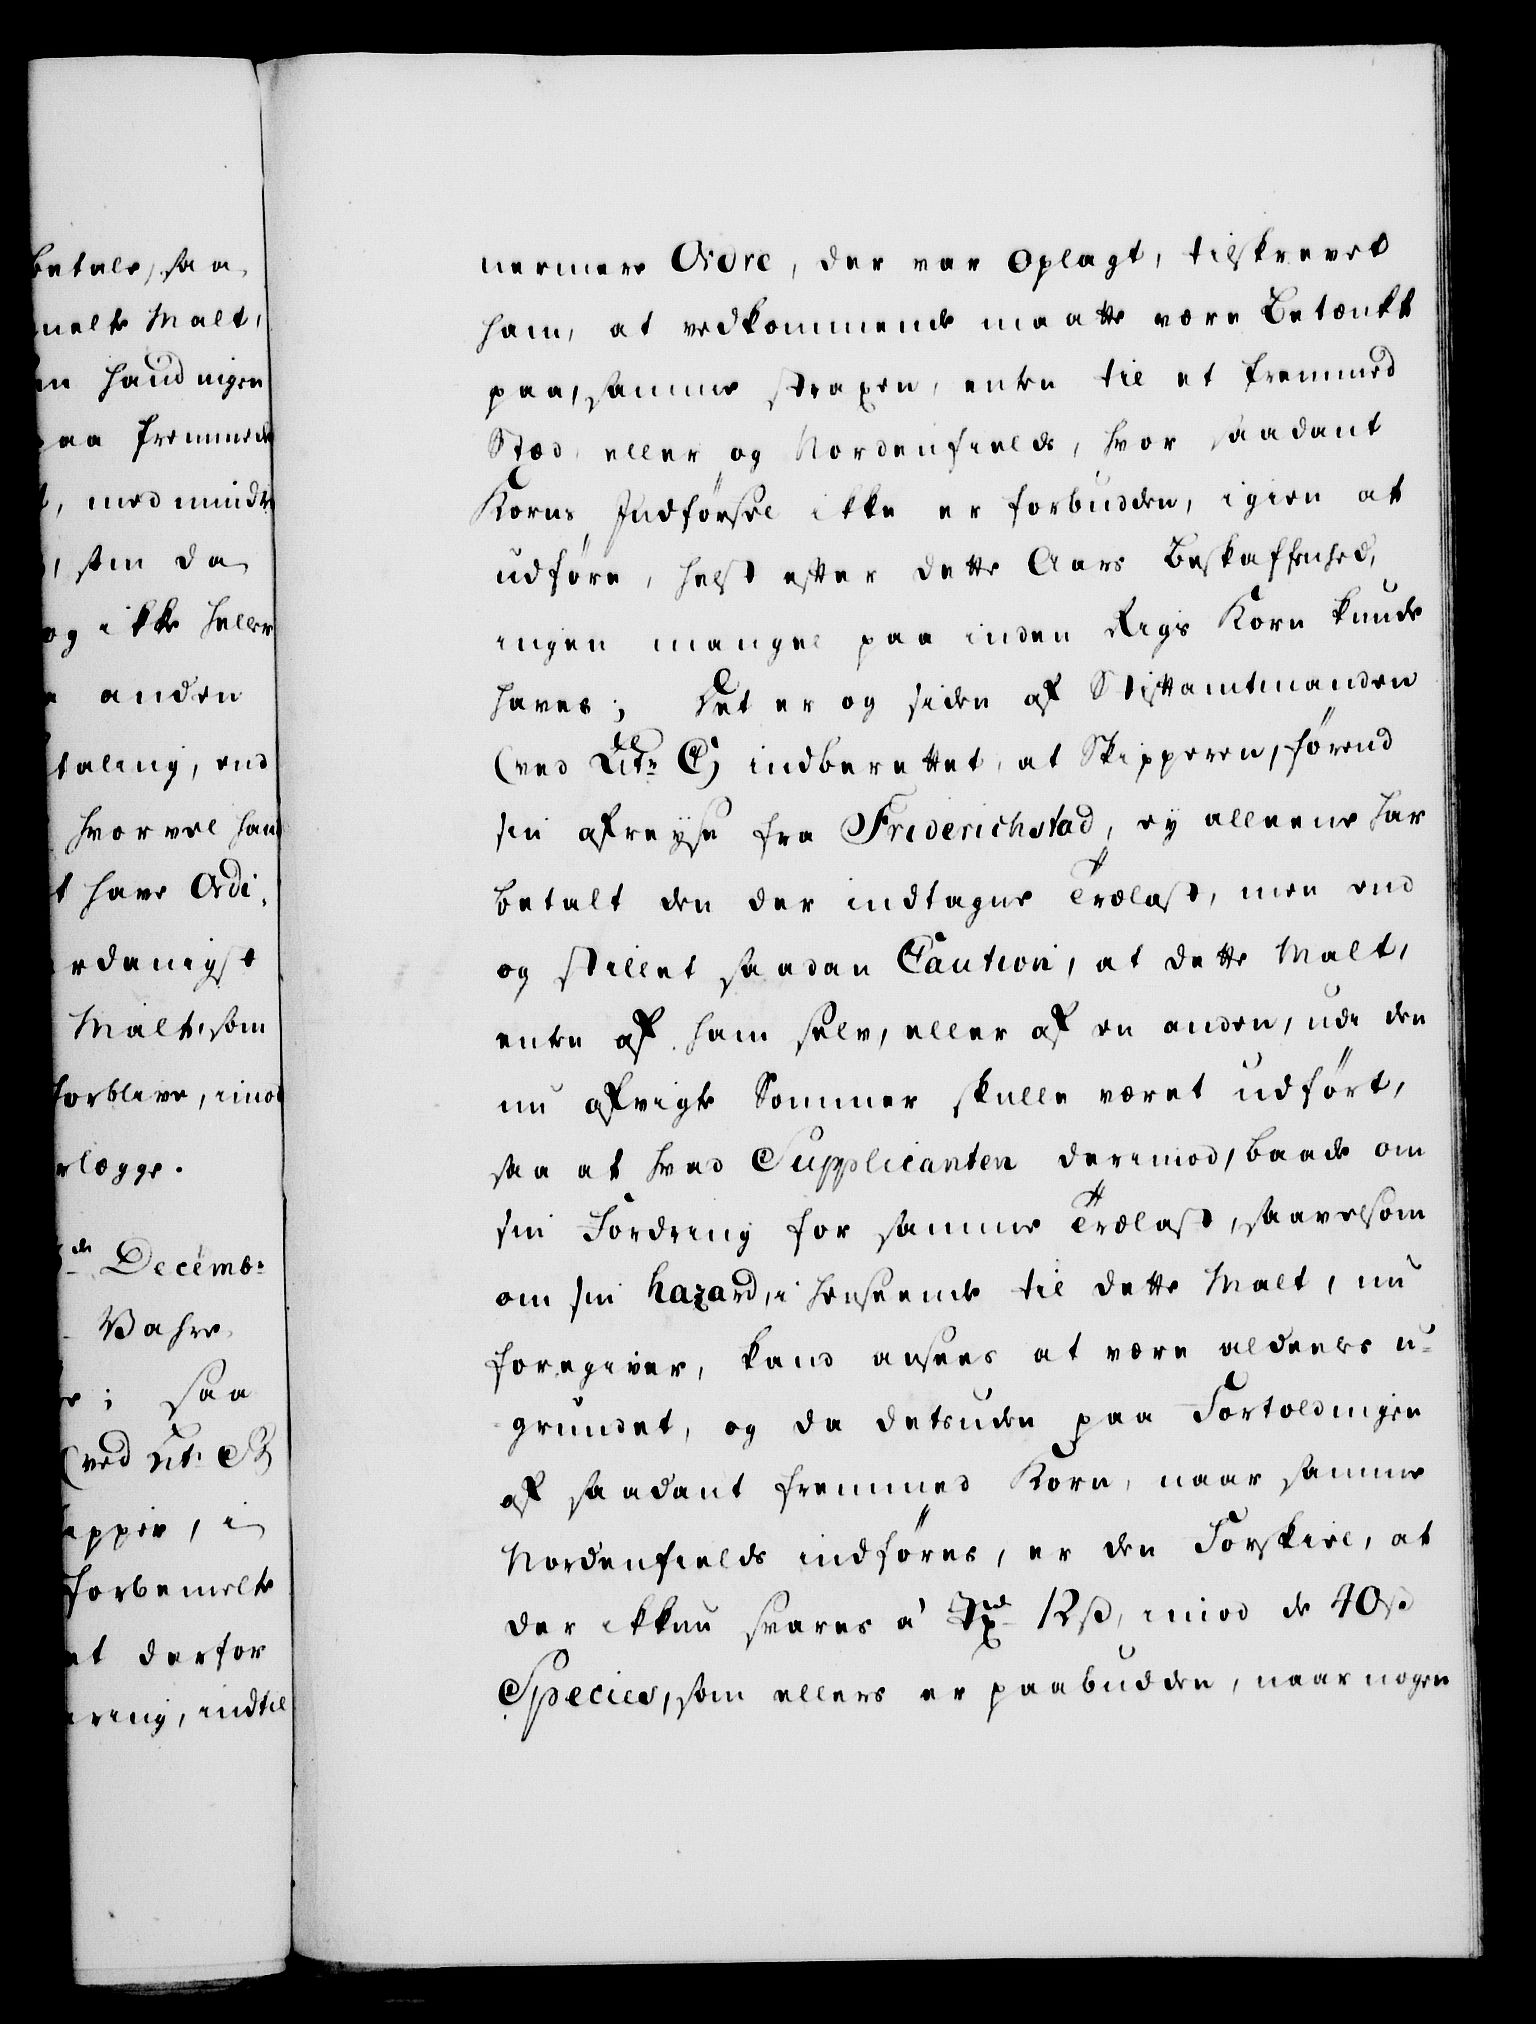 betale, saa
melte Malt,
en haud nigen
paa fremmede
t, med mindre
, som da
og ikke heller
e anden
taling, end
hvorvel hand
t have Ordi,
rdanigst
Malt, som
forblive, imod
rlægge.
de Decemb:
Vahre,
e; saa
(ved Lit: B)
epper, i
forbemelte
et derfor
ering, indtil
nermere Ordre, der var Oplagt, tilskrevet
ham, at vedkommende maatte være Betænkt
paa, samme straxen, enten til et fremmed
Stæd, eller og Nordenfields, hvor saadant
Korns Indførsel ikke er forbudden, igien at
udføre, helst efter dette Aars Beskaffenhed,
ingen mangel paa inden Rigs Korn kunde
haves; Det er og siden af Stiftamtmanden
(ved Litr: C) indberettet, at Skipperen, førend
sin afreyse fra Friderichstad, ey alleene har
betalt den der indtagne Trælast, men end
og stillet saadan Caution, at dette Malt,
enten af ham selv, eller af en anden, udi den
nu afvigte Sommer skulle været udført,
saa at hvad Supplicanten derimod, baade om
sin Fordring for samme Trælast, saavelsom
om sin hazard, i henseende til dette Malt, nu
foregiver, kand ansees at være aldeeles u=
grundet, og da detsuden paa Fortoldingen
af saadant fremmed Korn, naar samme
Nordenfields indføres, er den Forskiel, at
der ikkun svares à Td 12 ß, imod de 40 ß
Species, som ellers er paabudden, naar nogen